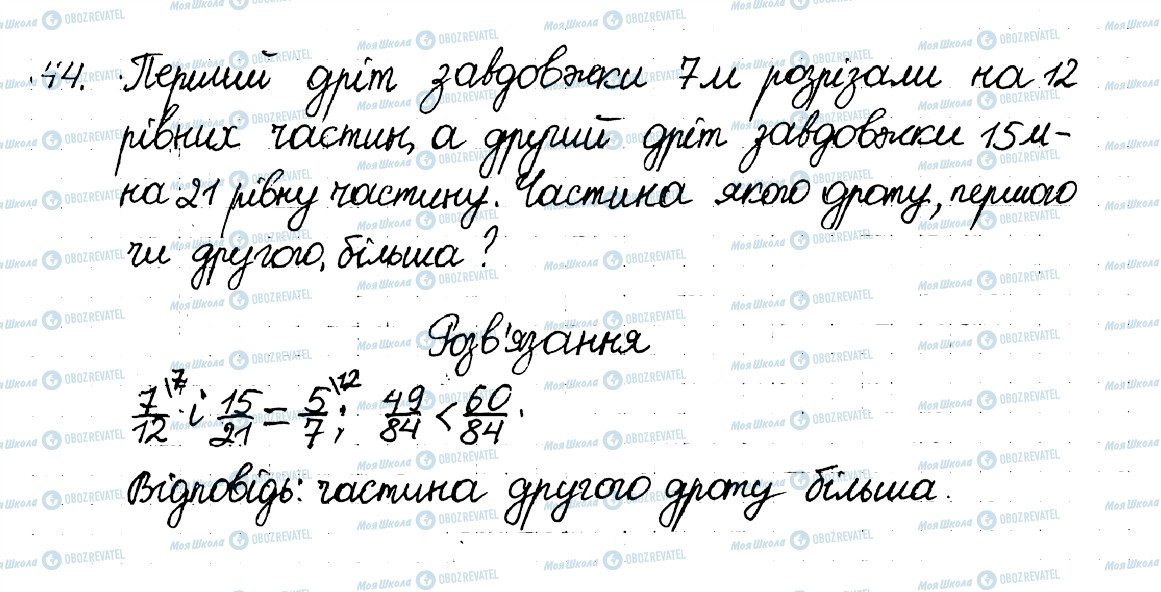 44. Перший дріт завдовжки 7 м розрізали на 12
рівних частин, а другий дріт завдовжки 15 м -
на 21 рівну частину. Частина якого дроту, першого
чи другого, більша?
Розв'язання
7/12 \7 і 15/21 = 5/7 \12; 49/84 < 60/84.
Відповідь: частина другого дроту більша.